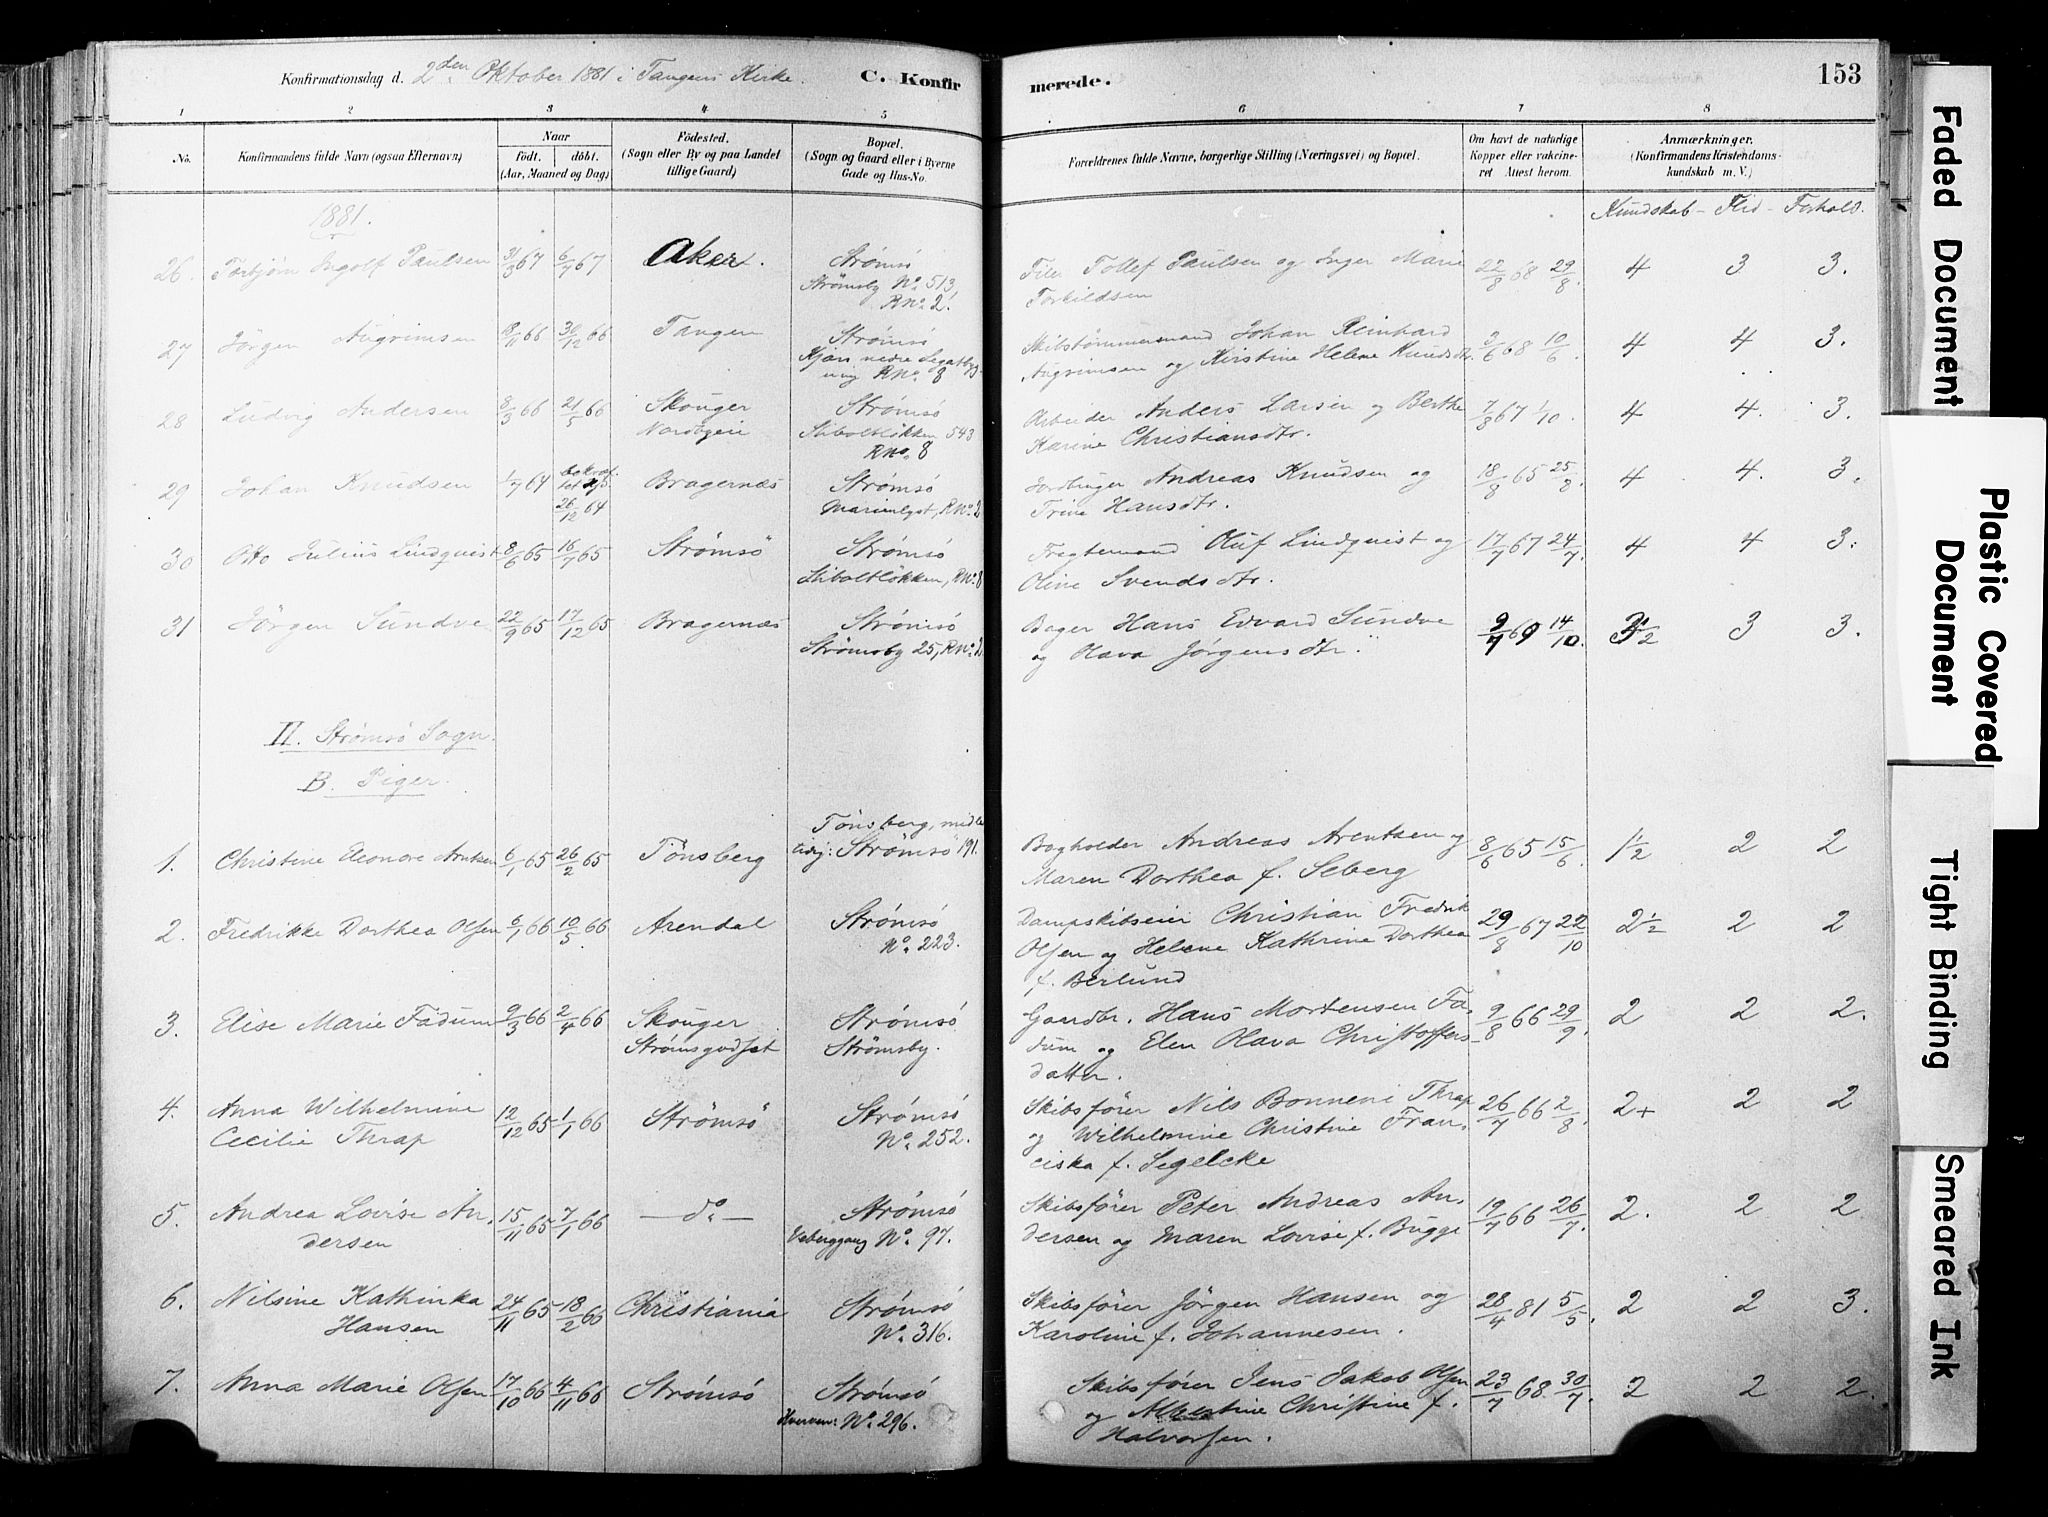 Konfirmationsdag d. 2den Oktober 1881 i Tangens Kirke. C. Konfir
merede. 153
1 2 3 4 5 6 7 8
No. Konfirmandens fulde Navn (ogsaa Efternavn) Naar födt. döbt. (Aar, Maaned og Dag) Födested. (Sogn eller By og paa Landet tillige Gaard) Bopæl. (Sogn og Gaard eller i Byerne Gade og Hus-No. Forældrenes fulde Navne, borgerlige Stilling (Næringsvei) og Bopæl. Om havt de naturlige Kopper eller vakcineret Attest herom. Anmærkninger. (Konfirmandens Kristendomskundskab m. V.)
1881. Kundskab - Flid - Forhold.
26. Torbjörn Ingolf Paulsen 31/3 67 6/7 67 Aker. Strømsö
Strömsby No. 513, RNo. 2. Tollef Paulsen og Inger Marie
Torkildsen 22/8 68 29/8. 4 3 3.
27 Jörgen Angrimsen 8/11 66 30/12 66 Tangen Strømsö
RNo. 8 Skibstømmermand Johan Reinhard
Angrimsen og Kirstine Helene Knudsdtr. 3/6 68 10/6. 4 4 3.
28 Ludvig Andersen 8/3 66 21/5 66 Skouger
Nordbyeie Strømsö
Stiboltlökken 543
RNo. 8 Arbeider Anders Larsen og Berthe
Karine Christiansdtr. 7/8 67 1/10. 4 4. 3.
29 Johan Knudsen 1/7 64 26/12 64 Bragernæs Strømsö
Marienlyst, RNo. 2 Jordbruger Andreas Knudsen og
Trine Hansdtr. 18/8 65 25/8. 4 4. 3.
30 Otto Julius Lindqvist 8/6 65 16/7 65 Strømsö Strømsö
Stiboltlökken, RNo. 8 Fragtemand Oluf Lindqvist og
Oline Svendsdtr. 17/7 67 24/7. 4 4 3.
31 Jörgen Sundve 22/9 65 17/12 65 Bragernæs Strømsö
Strömsby 25, RNo. 2. Bager Hans Edvard Sundve
og Olava Jörgensdtr. 9/7 69 14/10. 3 3.
II. Strømsö Sogn.
B. Piger.
1. Christine Eleonore Arntsen 6/1 65 26/2 65 Tönsberg Tönsberg, midler
tidig: Strømsö 191. Bogholder Andreas Arentsen og
Maren Dorthea f. Seberg 8/6 65 15/6. 1½ 2 2
2. Fredrikke Dorthea Olsen 6/1 66 10/5 66 Arendal Strømsö
No. 223. Dampskibseier Christian Fredrik
Olsen og Helene Kathrine Dorthea
f. Berlund 29/8 67 22/10 2½ 2 2
3. Elise Marie Fadum 9/3 66 2/4 66 Skouger
Strømsgodset Strømsö
Strömsby. Gaardbr. Hans Mortensen Fa,
dum og Elen Olava Christoffers-
datter. 9/8 66 29/9. 2 2 2.
4. Anna Wilhelmine
Cecilie Thrap 12/12 65 1/1 66 Strømsö Strømsö
No. 252. Skibsfører Nils Bonnevi Thrap
og Wilhelmine Christine Fran,
ciska f. Segelcke 26/7 66 2/8. 2+ 2 2
5. Andrea Lovise An,
dersen 15/11 65 7/1 66 — do — Strømsö
No. 97. Skibsfører Peter Andreas An,
dersen og Maren Lovise f. Bugge 19/7 66 26/7. 2. 2 2
6. Nilsine Kathinka
Hansen 24/11 65 18/2 66 Christiania Strømsö
No. 316. Skibsfører Jörgen Hansen og
Karoline f. Johannesen. 28/4 81 5/5. 2 2 3.
7. Anna Marie Olsen 17/10 66 4/11 66 Strømsö Strømsö
No. 296. Skibsfører Jens Jakob Olsen
og Albertine Christine f.
Halvorsen. 23/7 68 30/7. 2 2 2.
Faded Document
Plastic Covered Document
Tight Binding
Smeared Ink